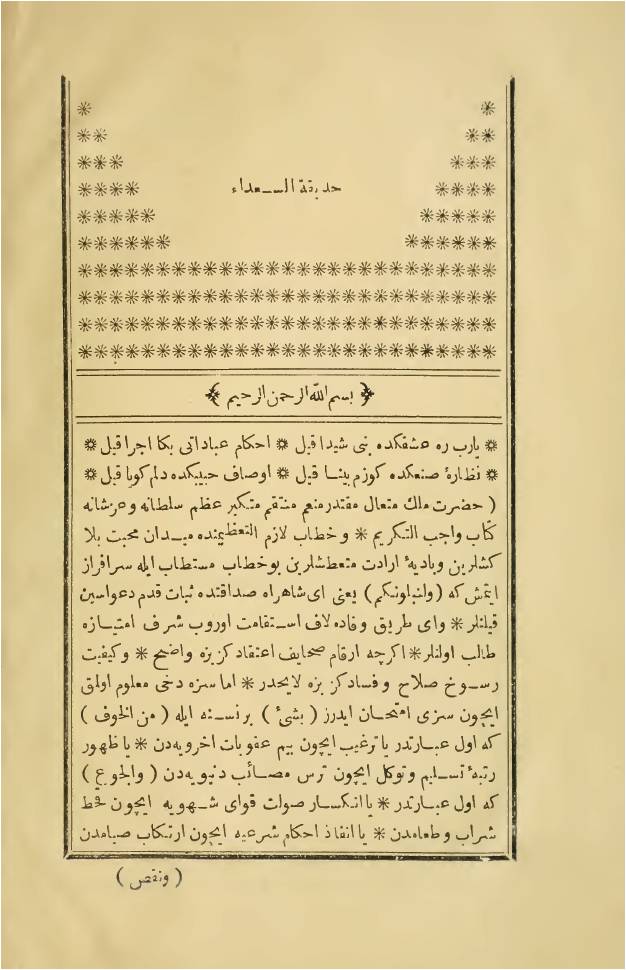 حديقة السـعداء
بسم الله الرحمن الرحيم
يارب ره عشقكده بنى شيدا قيل * احكام عباداتى بكا اجرا قيل
نظارهٔ صنعكده كوزم بينـا قيل * اوصاف حبيبكده دلم كويا قيل
( حضرت ملك متعال مقتدر منعم منتقم متكبر عظم سلطانه وعز شانه
كتاب واجب التكريم * وخطاب لازم التعظيمنده ميـدان محبت بلا
كشلرين وباديهٔ ارادت متعطشلرين بوخطاب مستطاب ايله سرافراز
ايتمش كه (ولنبلونكم) يعنى اى شاهراه صداقتده ثبات قدم دعواسين
قيلنلر * واى طريق وفاده لاف اسـتقامت اوروب شرف امتيـازه
طالب اولنلر * اكرچه ارقام صحايف اعتقادكز بزه واضح * وكيفيت
رسـوخ صلاح وفسادكز بزه لايحدر * اما سزه دخى معلوم اولمق
ايچون سزى امتحـان ايدرز ( بشئ ) برنسـنه ايله ( من الخوف )
كه اول عبـارتدر يا ترغيب ايچون بيم عقوبات اخرويه‌دن * يا ظهور
رتبهٔ تسـليم وتوكل ايچون ترس مصـائب دنيويه‌دن ( والجوع )
كه اول عبـارتدر * يا انكسـار صولت قواى شـهويه ايچون قحط
شراب وطعامدن * يا انفاذ احكام شرعيه ايچون ارتكاب صيامدن
( ونقص )